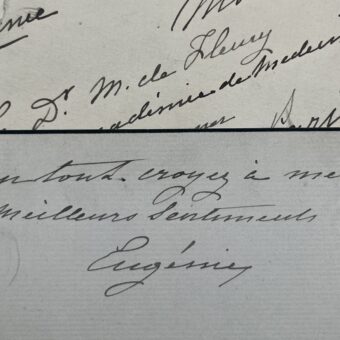 Dr. M. de Fleury
adémie de Medeci
en tout. croyez à me
Meilleurs Sentiments
Eugénie